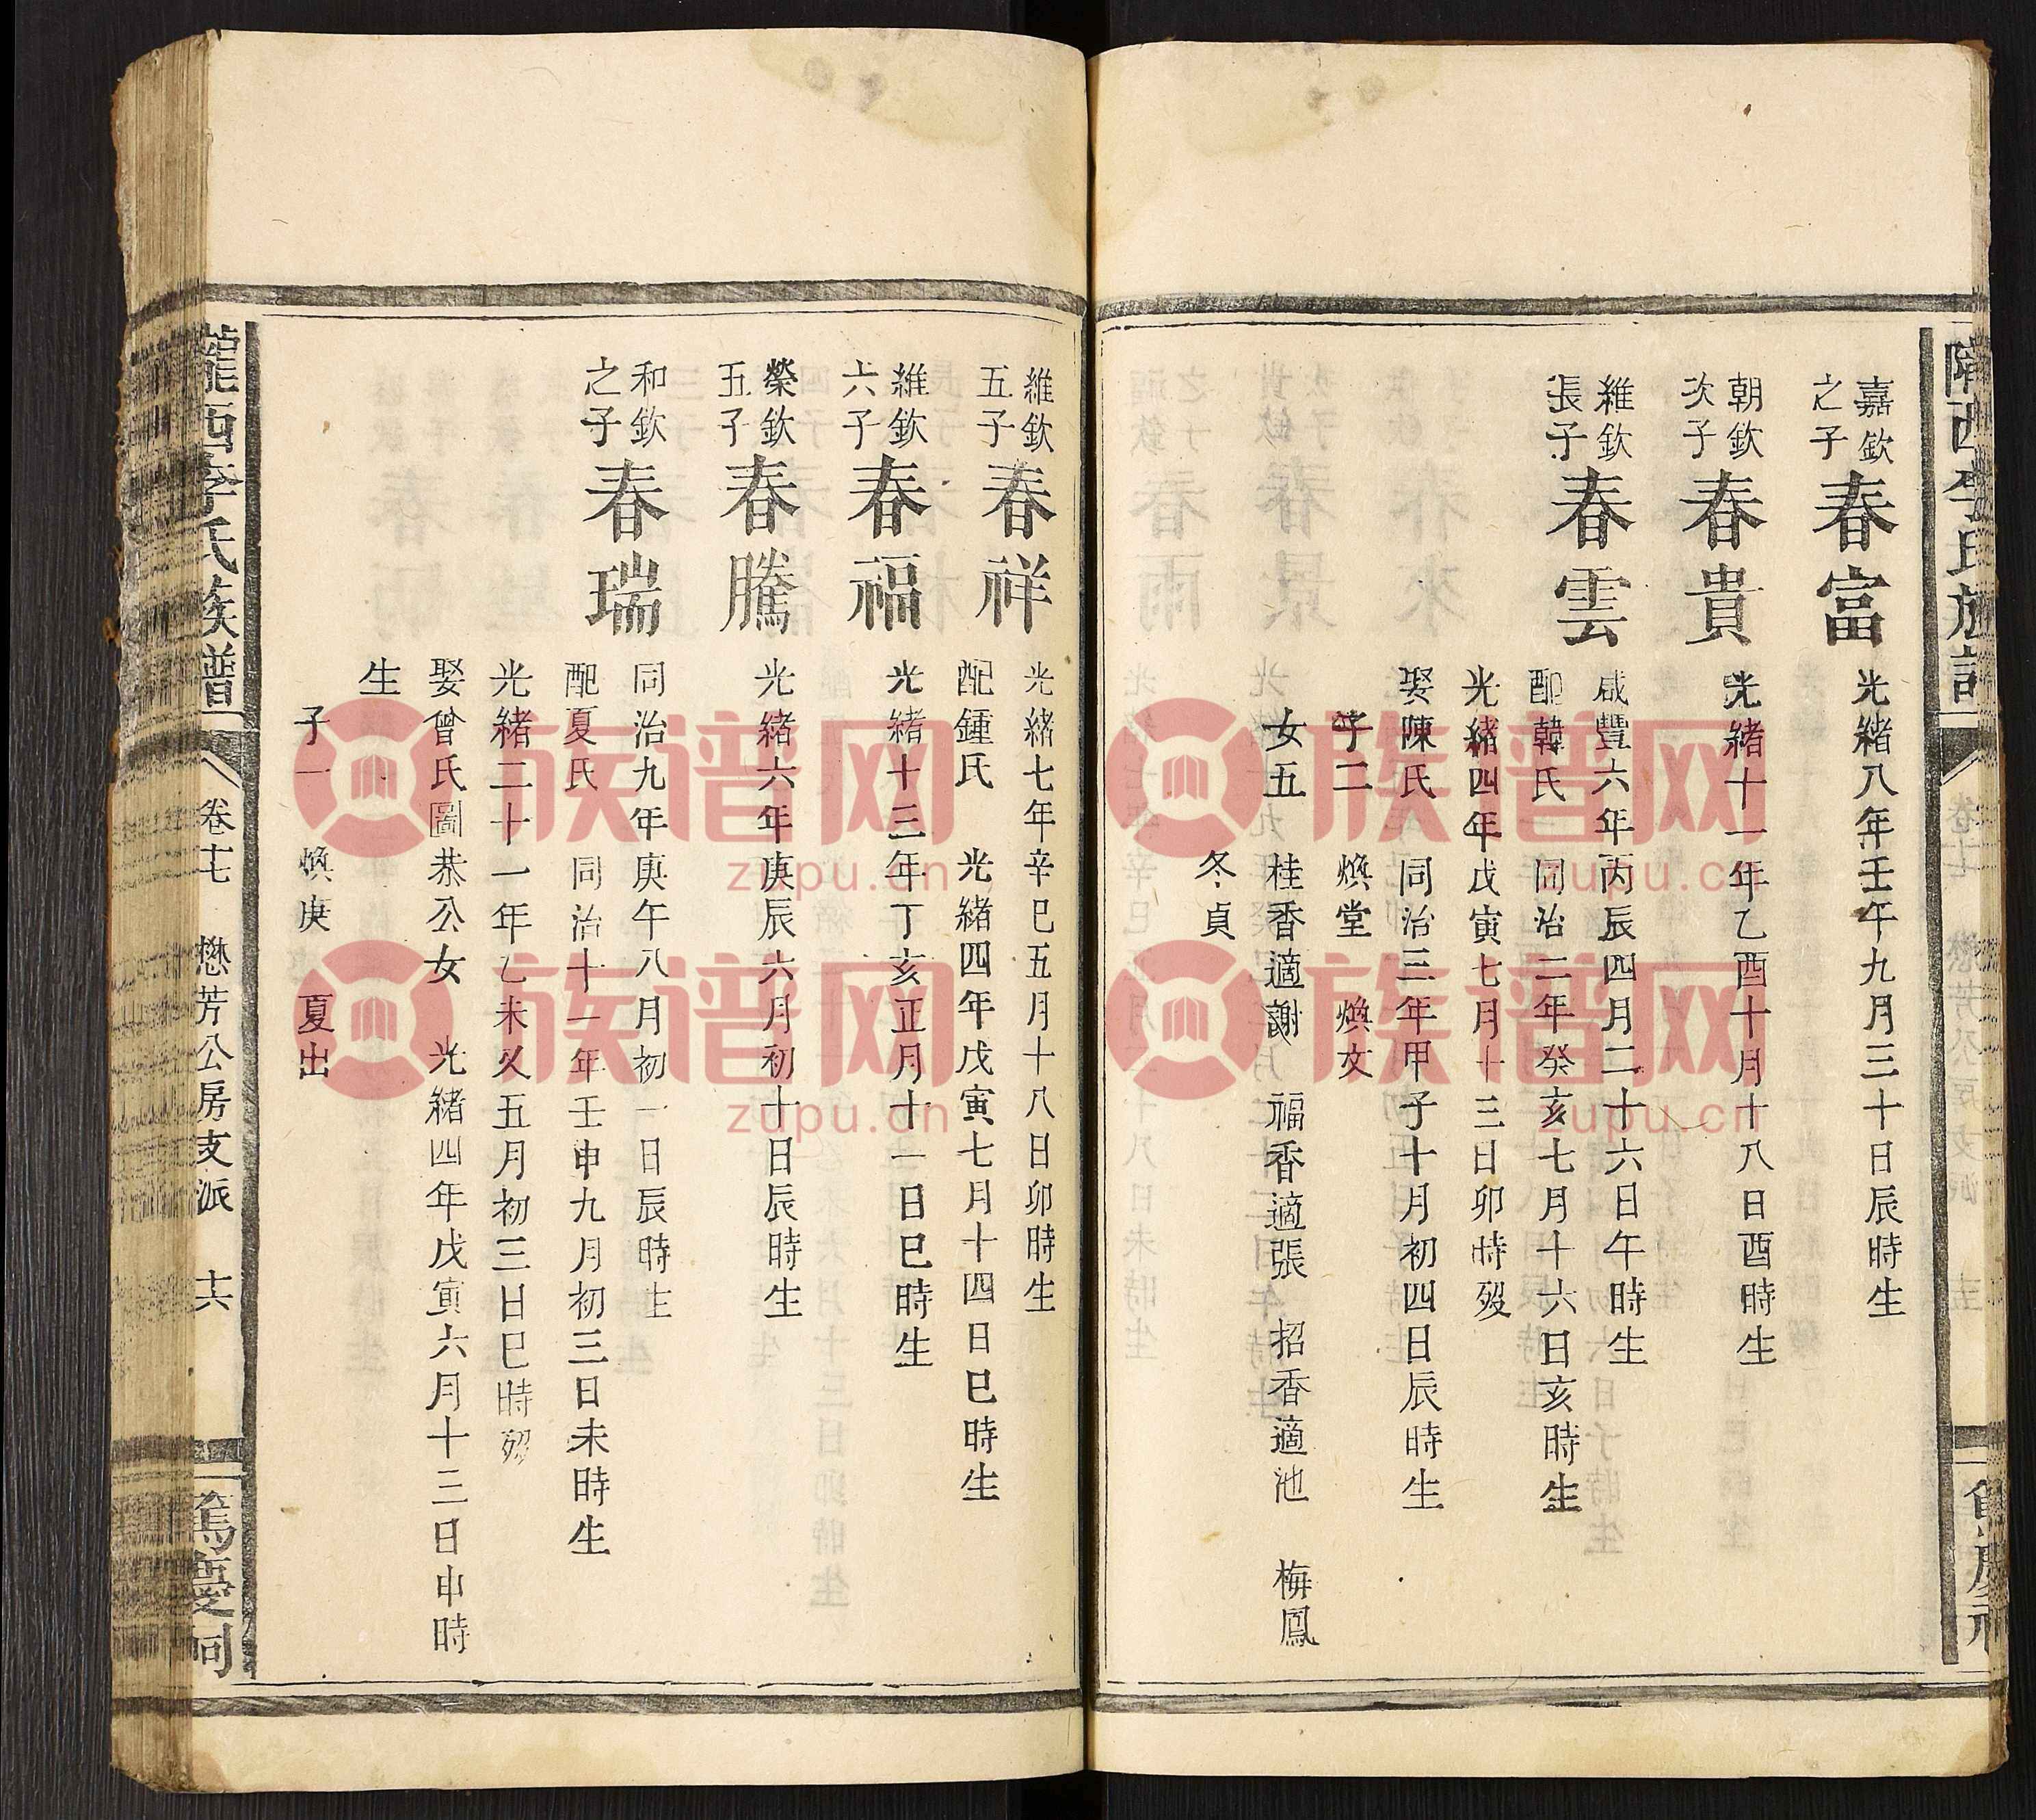 嘉欽之子
春富
光緒八年壬午九月三十日辰時生
朝欽次子
春貴
光緒十一年乙酉十月十八日酉時生
維欽長子
春雲
咸豐六年丙辰四月二十六日午時生
配韓氏 同治二年癸亥七月十六日亥時生
光緒四年戊寅七月十三日卯時歿
娶陳氏 同治三年甲子十月初四日辰時生
子二 煥堂 煥文
女五 桂香適謝 福香適張 招香適池 梅鳳
冬貞
維欽五子
春祥
光緒七年辛巳五月十八日卯時生
配鍾氏 光緒四年戊寅七月十四日巳時生
維欽六子
春福
光緒十三年丁亥正月十一日巳時生
榮欽五子
春騰
光緒六年庚辰六月初十日辰時生
和欽之子
春瑞
同治九年庚午八月初一日辰時生
配夏氏 同治十一年壬申九月初三日未時生
光緒二十一年乙未又五月初三日巳時歿
娶曾氏圖恭公女 光緒四年戊寅六月十三日申時
生
子一 煥庚 夏出
隴西李氏族譜 卷十七 懋芳公房支派 十六 篤慶祠
族谱网
zupu.cn
族谱网
zupu.cn
族谱网
zupu.cn
族谱网
zupu.cn